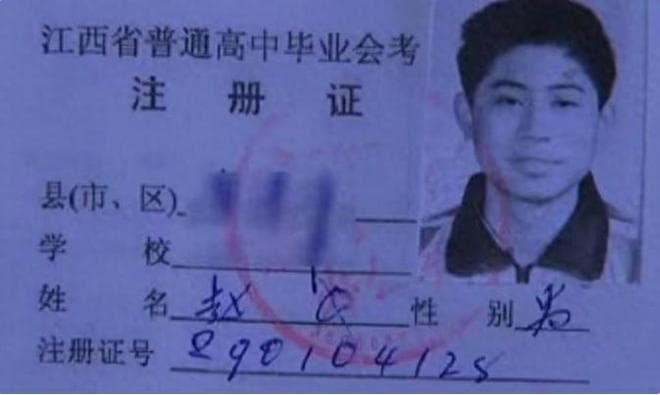 江西省普通高中毕业会考
注册证
县(市、区)
学校
姓名 赵C 性别 男
注册证号 890104125